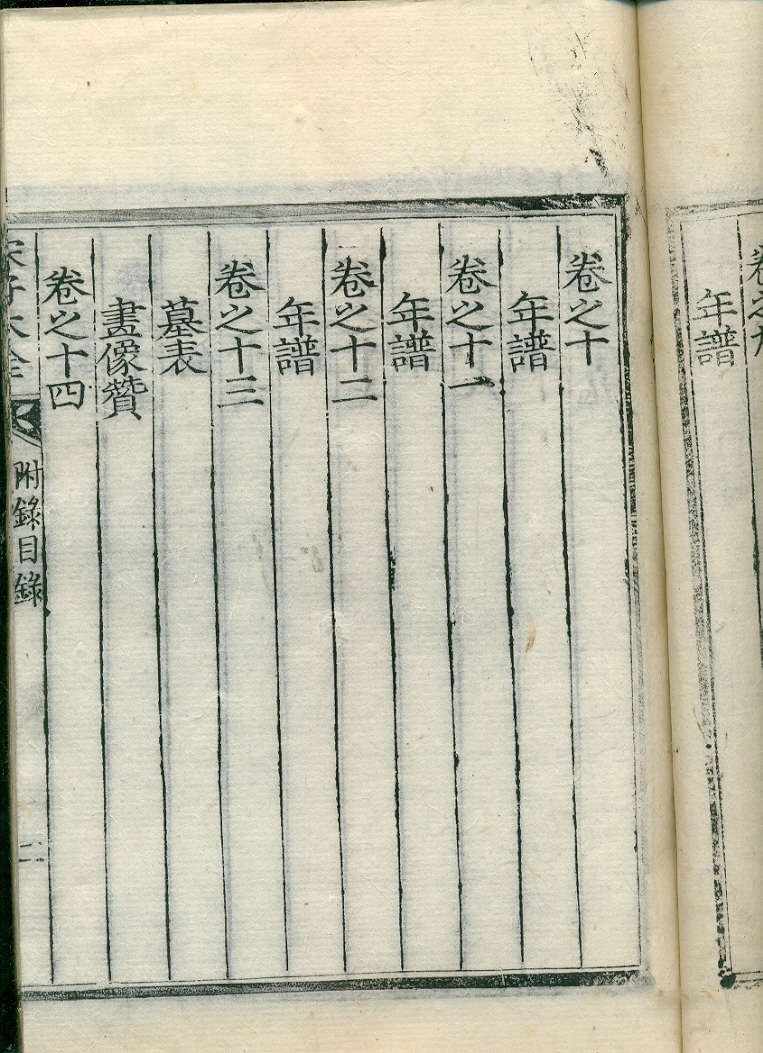 卷之九
年譜
卷之十
年譜
卷之十一
年譜
卷之十二
年譜
卷之十三
墓表
畫像贊
卷之十四
宋子大全
附錄目錄
二